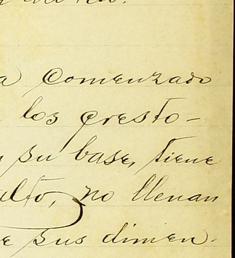 a comenzado
los cresto-
su base, tiene
alto, no llenan
e sus dimen-